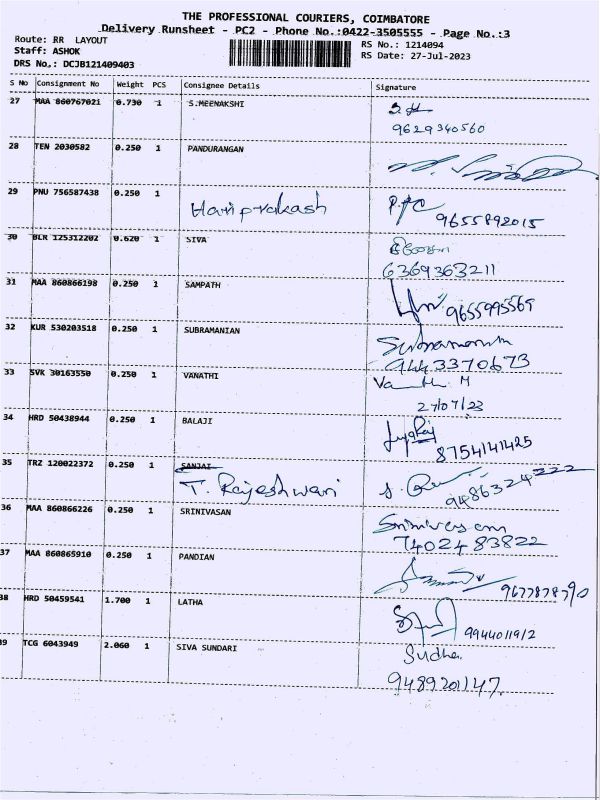 THE PROFESSIONAL COURIERS, COIMBATORE
Delivery Runsheet - PC2 - Phone No.:0422-3505555 - Page No.:3
Route: RR LAYOUT
Staff: ASHOK
DRS No.: DCJB121409403
RS No.: 1214094
RS Date: 27-Jul-2023
S No Consignment No Weight PCS Consignee Details Signature
27 MAA 860767021 0.730 1 S.MEENAKSHI
9629340560
28 TEN 2030582 0.250 1 PANDURANGAN
29 PNU 756587438 0.250 1
Hariprakash 9655892015
30 BLR 125312202 0.620 1 SIVA
6369363211
31 MAA 860866198 0.250 1 SAMPATH
9655995569
32 KUR 530203518 0.250 1 SUBRAMANIAN
9443370673
33 SVK 30163550 0.250 1 VANATHI
27/07/23
34 HRD 50438944 0.250 1 BALAJI
8754141425
35 TRZ 120022372 0.250 1 SANJAI
T. Rajeshwari 9486324222
36 MAA 860866226 0.250 1 SRINIVASAN
7402483822
37 MAA 860865910 0.250 1 PANDIAN
38 HRD 50459541 1.700 1 LATHA
9944011912
39 TCG 6043949 2.060 1 SIVA SUNDARI Sudha
9489201147.